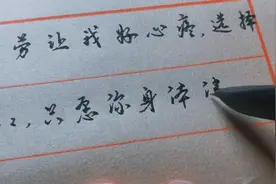 劳让我好心疼,选择
,只愿你身体